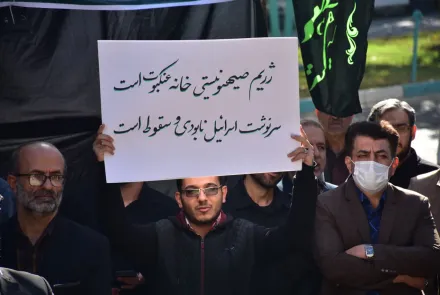 رژیم صیهونیستی خانه عنکبوت است
سرنوشت اسرائیل نابودی و سقوط است